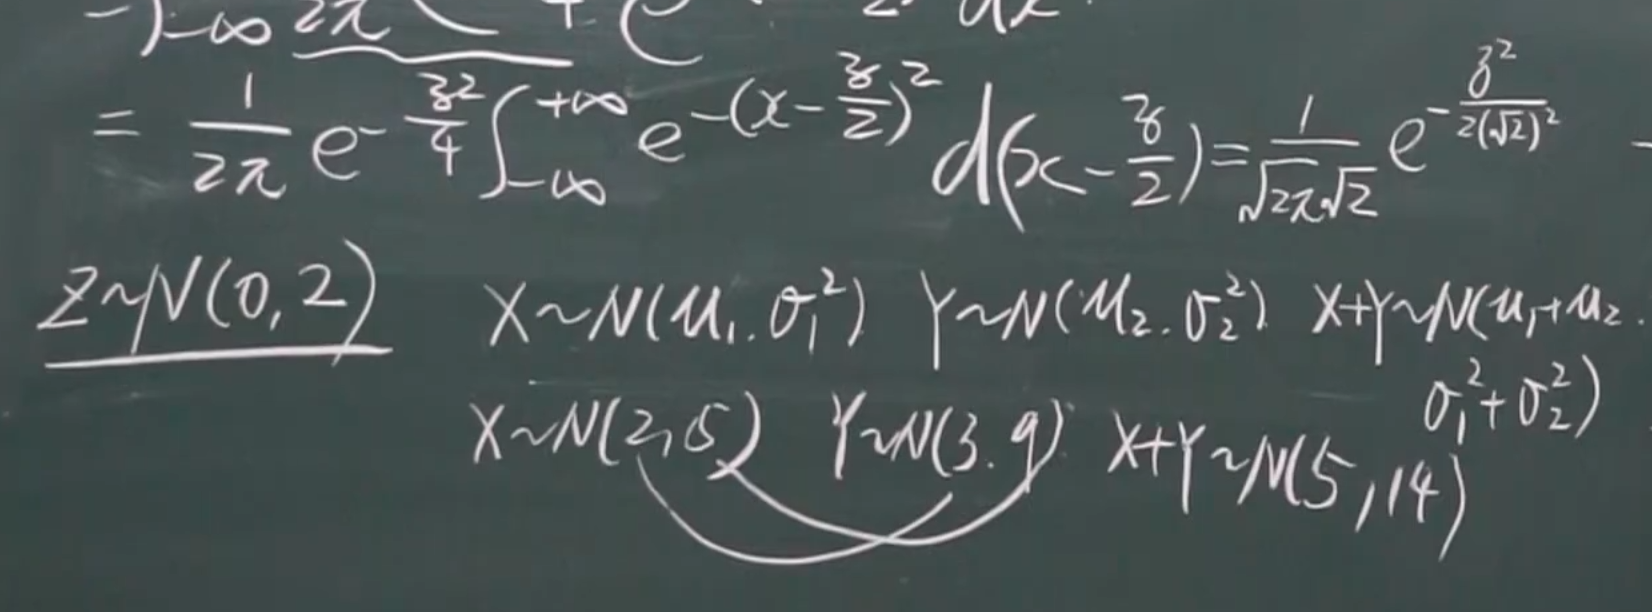 -∫-∞ 2π 4 (e 2 dx
= 1/2π e^-z²/4 ∫_-∞^+∞ e^-(x-z/2)² d(x-z/2) = 1/√2π√2 e^-z²/2(√2)²
Z~N(0,2) X~N(μ₁.σ₁²) Y~N(μ₂.σ₂²) X+Y~N(μ₁+μ₂.
σ₁²+σ₂²)
X~N(2,5) Y~N(3.9) X+Y~N(5,14)